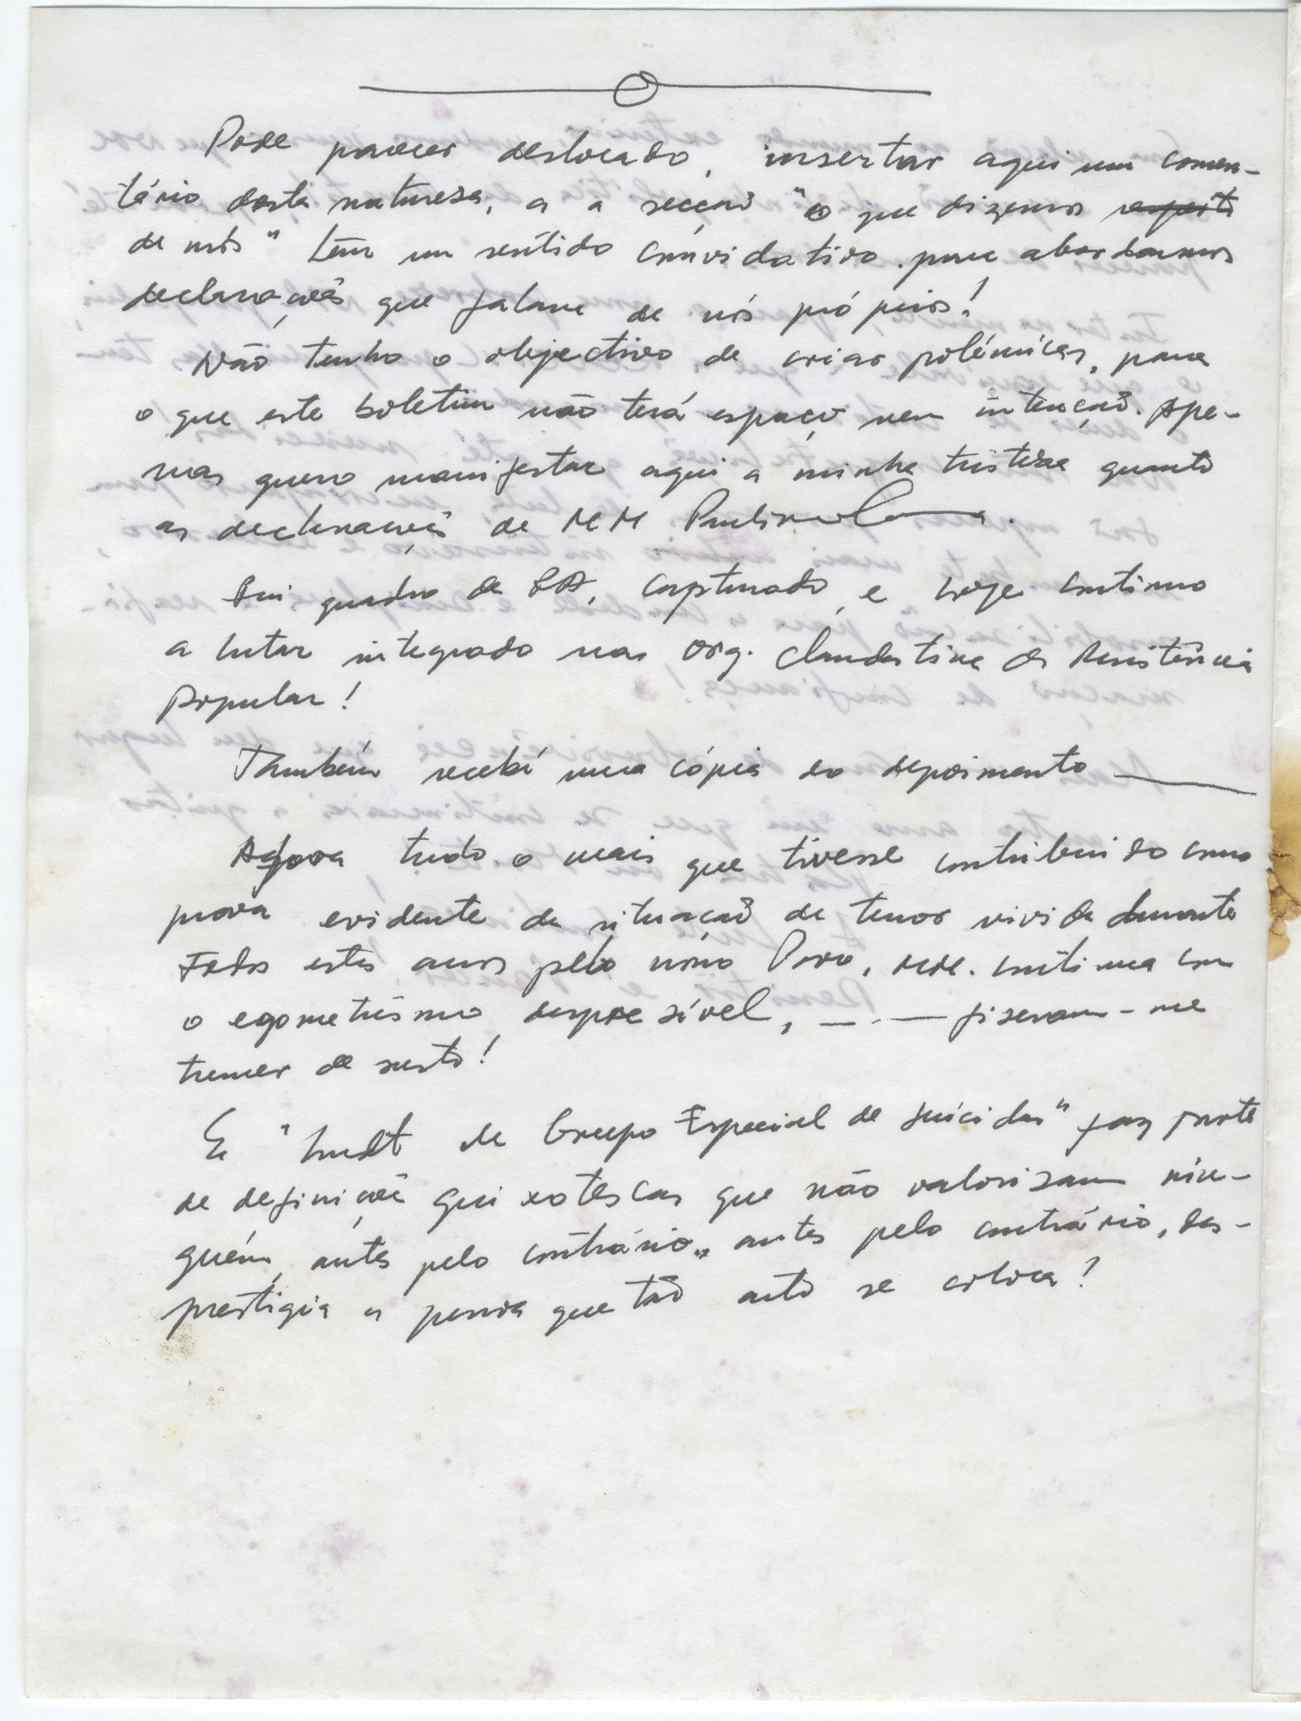 Pode parecer deslocado, insertar aqui um comen-
tário desta natureza, e a secçaõ "o que dizemos
de nós" tem um sentido convidativo para abordarmos
declaraçoẽs que falam de nós própios!
Não tenho o objectivo de criar polémicas, para
o que este boletim não terá espaço nem intençaõ. Ape-
nas quero manifestar aqui a minha tristeza quanto
as declaraçoẽs de MM Paulino
Fui quadro da captu­rado, e hoje continuo
a lutar integrado nas org. clandestina da Resistência
Popular!
Também recebí uma cópia do depoimento
Agora tudo o mais que tivesse contribuido como
prova evidente da situaçaõ de terror vivida durante
todos estes anos pelo nosso Povo, MM. continua com
o egometrismo despresível, — . — fizeram-me
tremer de susto!
E "Cmdt de Grupo Especial de Suicidas" faz parte
de definiçoẽs quixotescas que não valorizam nin-
guém, antes pelo contrário,, antes pelo contrário, des-
prestigia a pessoa que taõ alto se coloca!